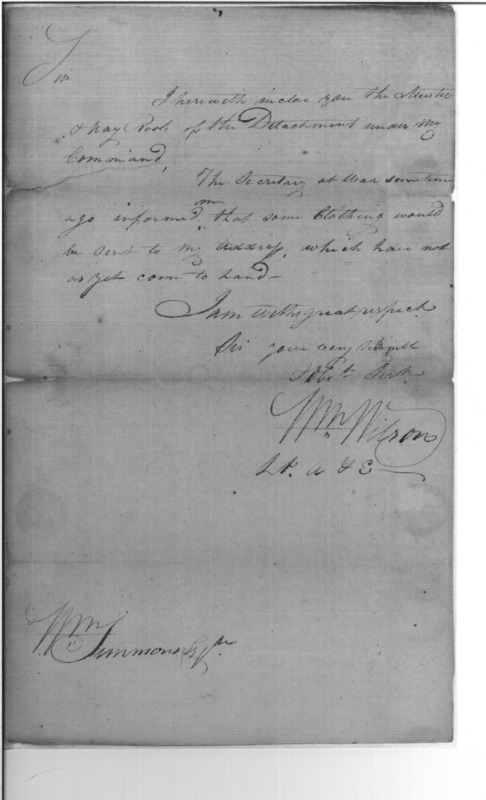 Sir
I herewith inclose you the Muster
& Pay Roll of the Detachment under my
Command,
The Secretary at War sometime
ago informed me that some Clothing would
be sent to my address, which have not
as yet come to hand—
I am with great respect
Sir your very humble
Obt. Servt.
Wm. Wilson
Lt. A & E
Wm. Simmons Esqr.